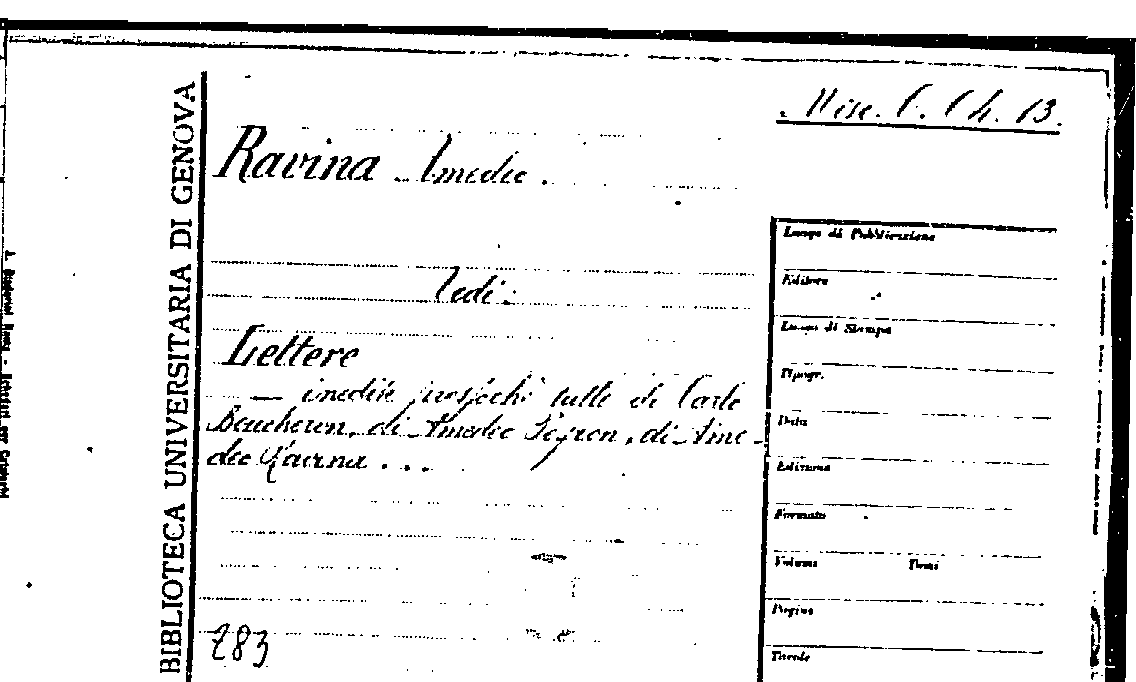 Misc. C. Ch. 13.
BIBLIOTECA UNIVERSITARIA DI GENOVA
Ravina Amedeo.
Vedi:
Lettere
— inedite di Carlo
Boucheron, di Amedeo Peyron, di Ame-
deo Ravina...
283
Luogo di Pubblicazione
Editore
Luogo di Stampa
Tipogr.
Data
Edizione
Formato
Volumi Tomi
Pagine
Tavole